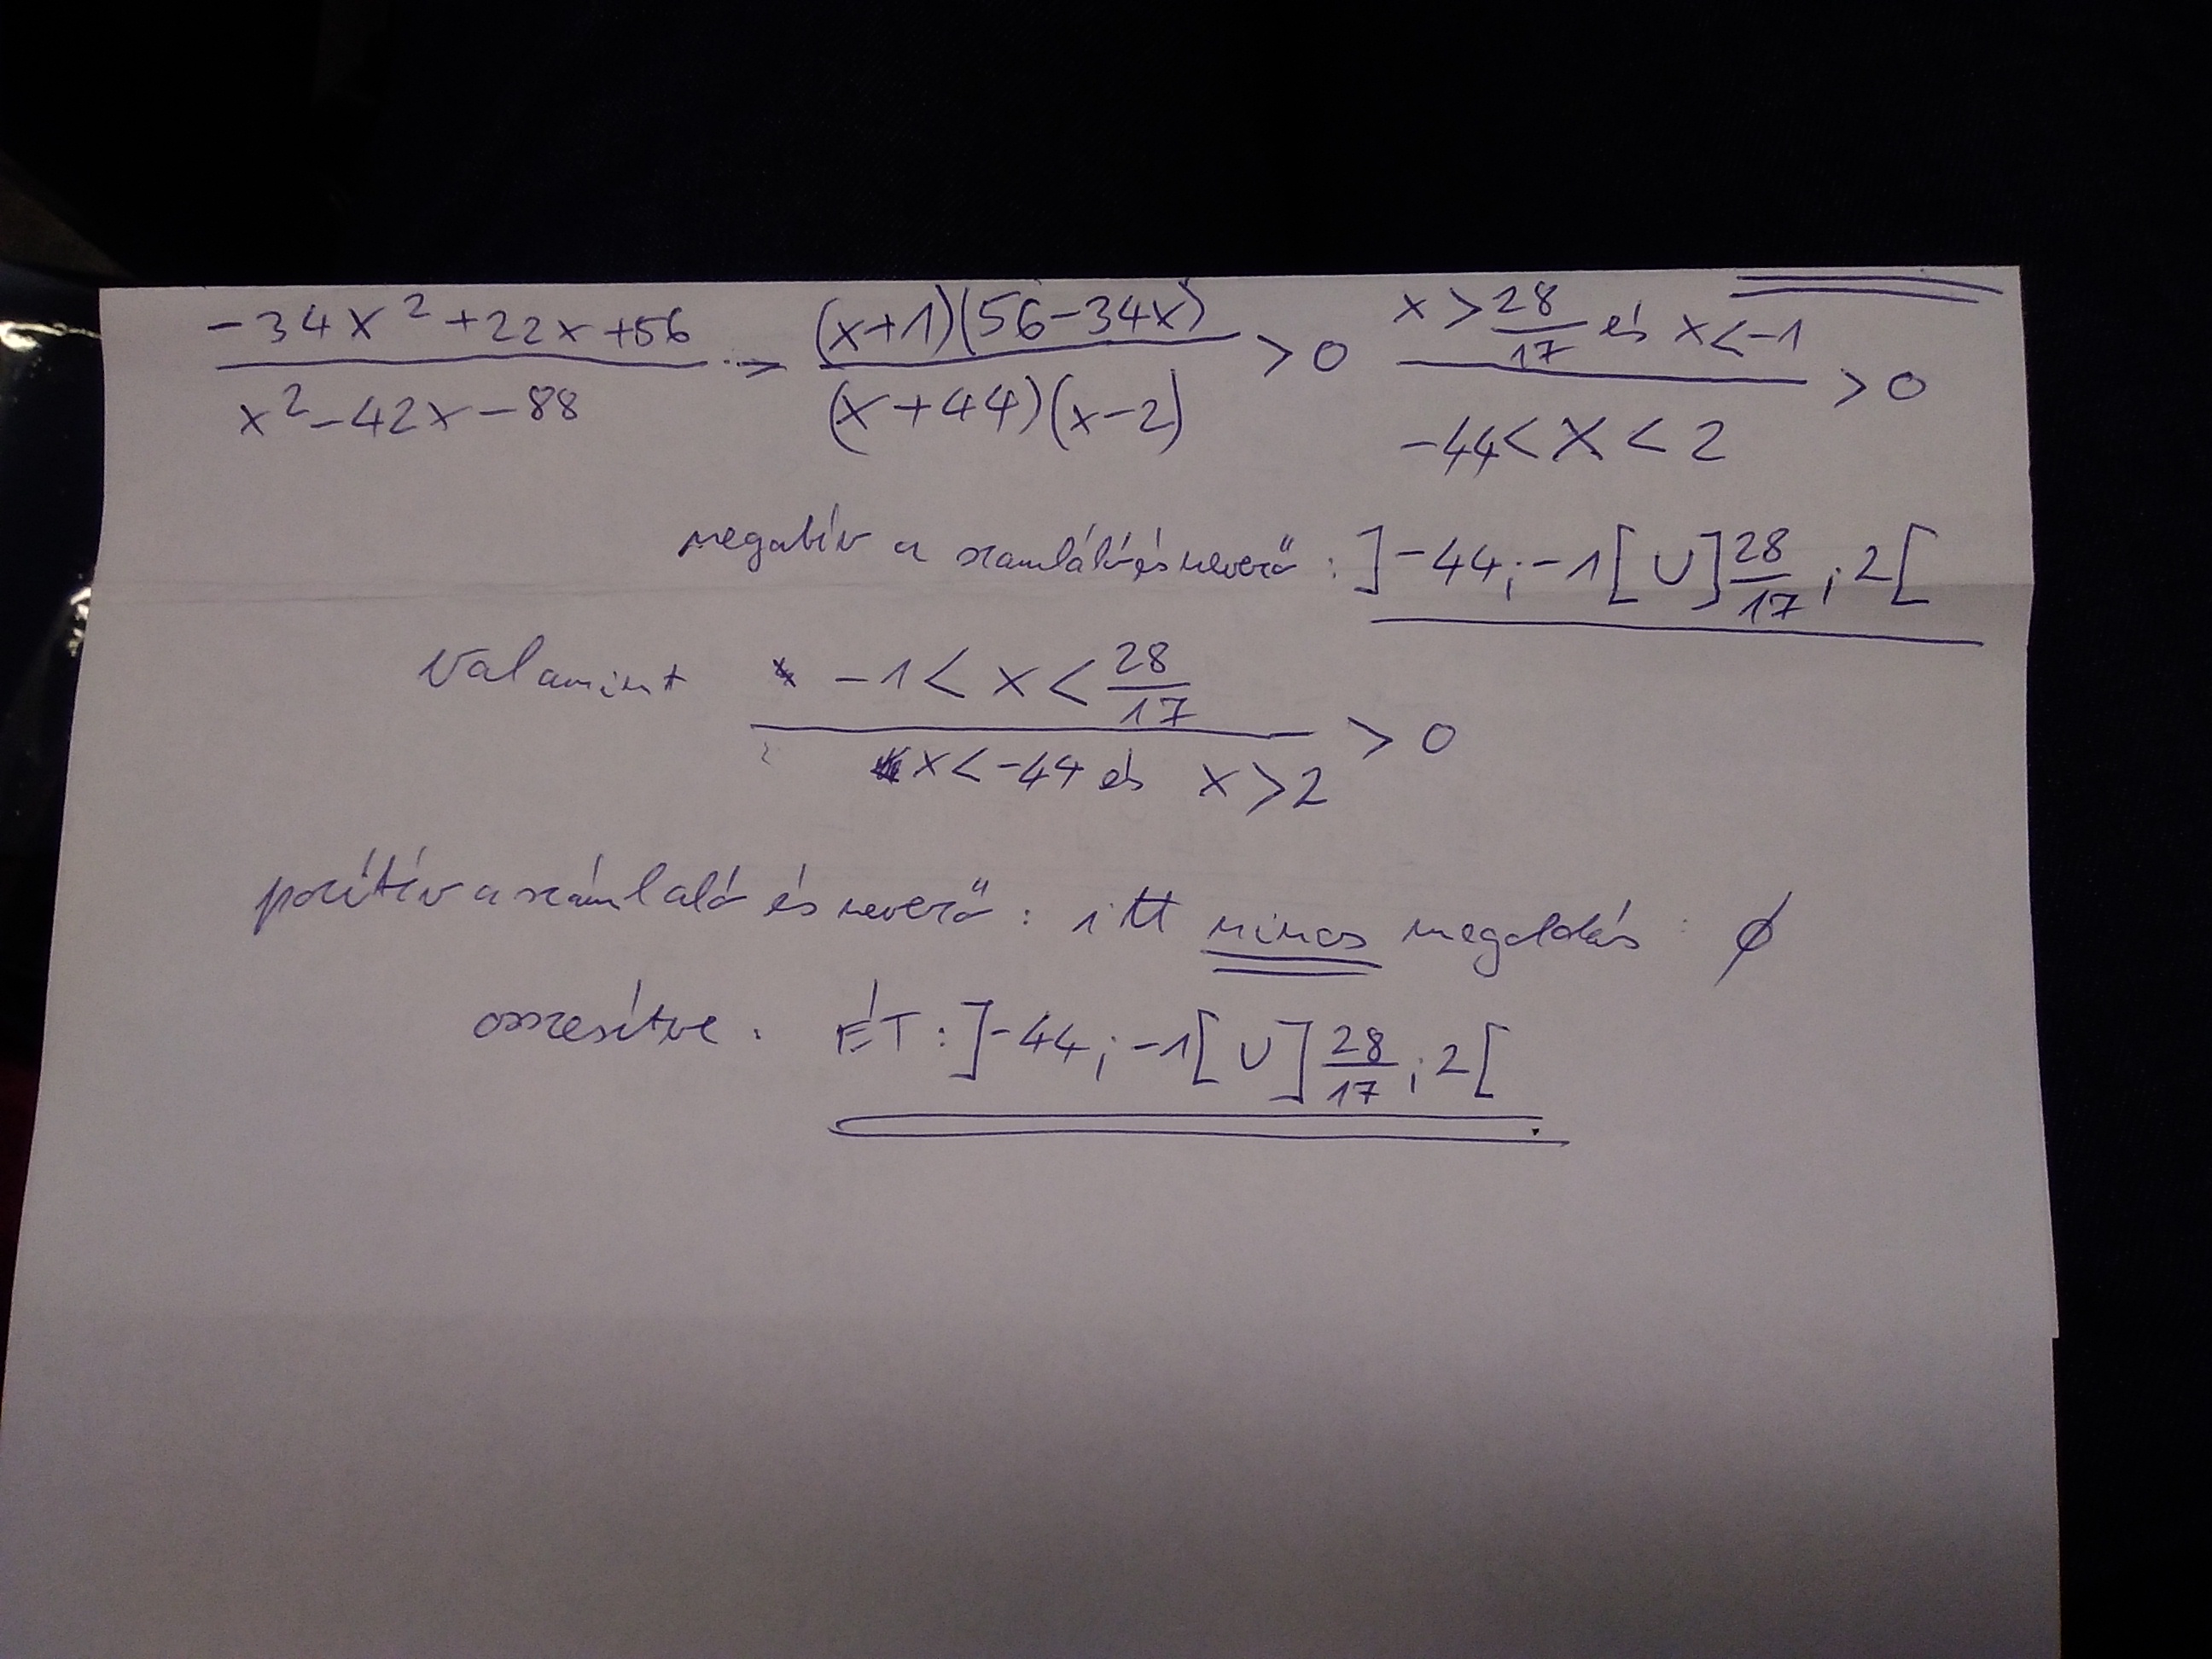 -34x² +22x +56 / x² -42x -88 -> (x+1)(56-34x) / (x+44)(x-2) > 0 x > 28/17 és x < -1 / -44 < x < 2 > 0
negatív a számláló és nevező : ]-44; -1[ ∪ ]28/17 ; 2[
Valamint -1 < x < 28/17 / x < -44 és x > 2 > 0
pozitív a számláló és nevező : itt nincs megoldás : ∅
összesítve : ÉT : ]-44; -1[ ∪ ]28/17 ; 2[